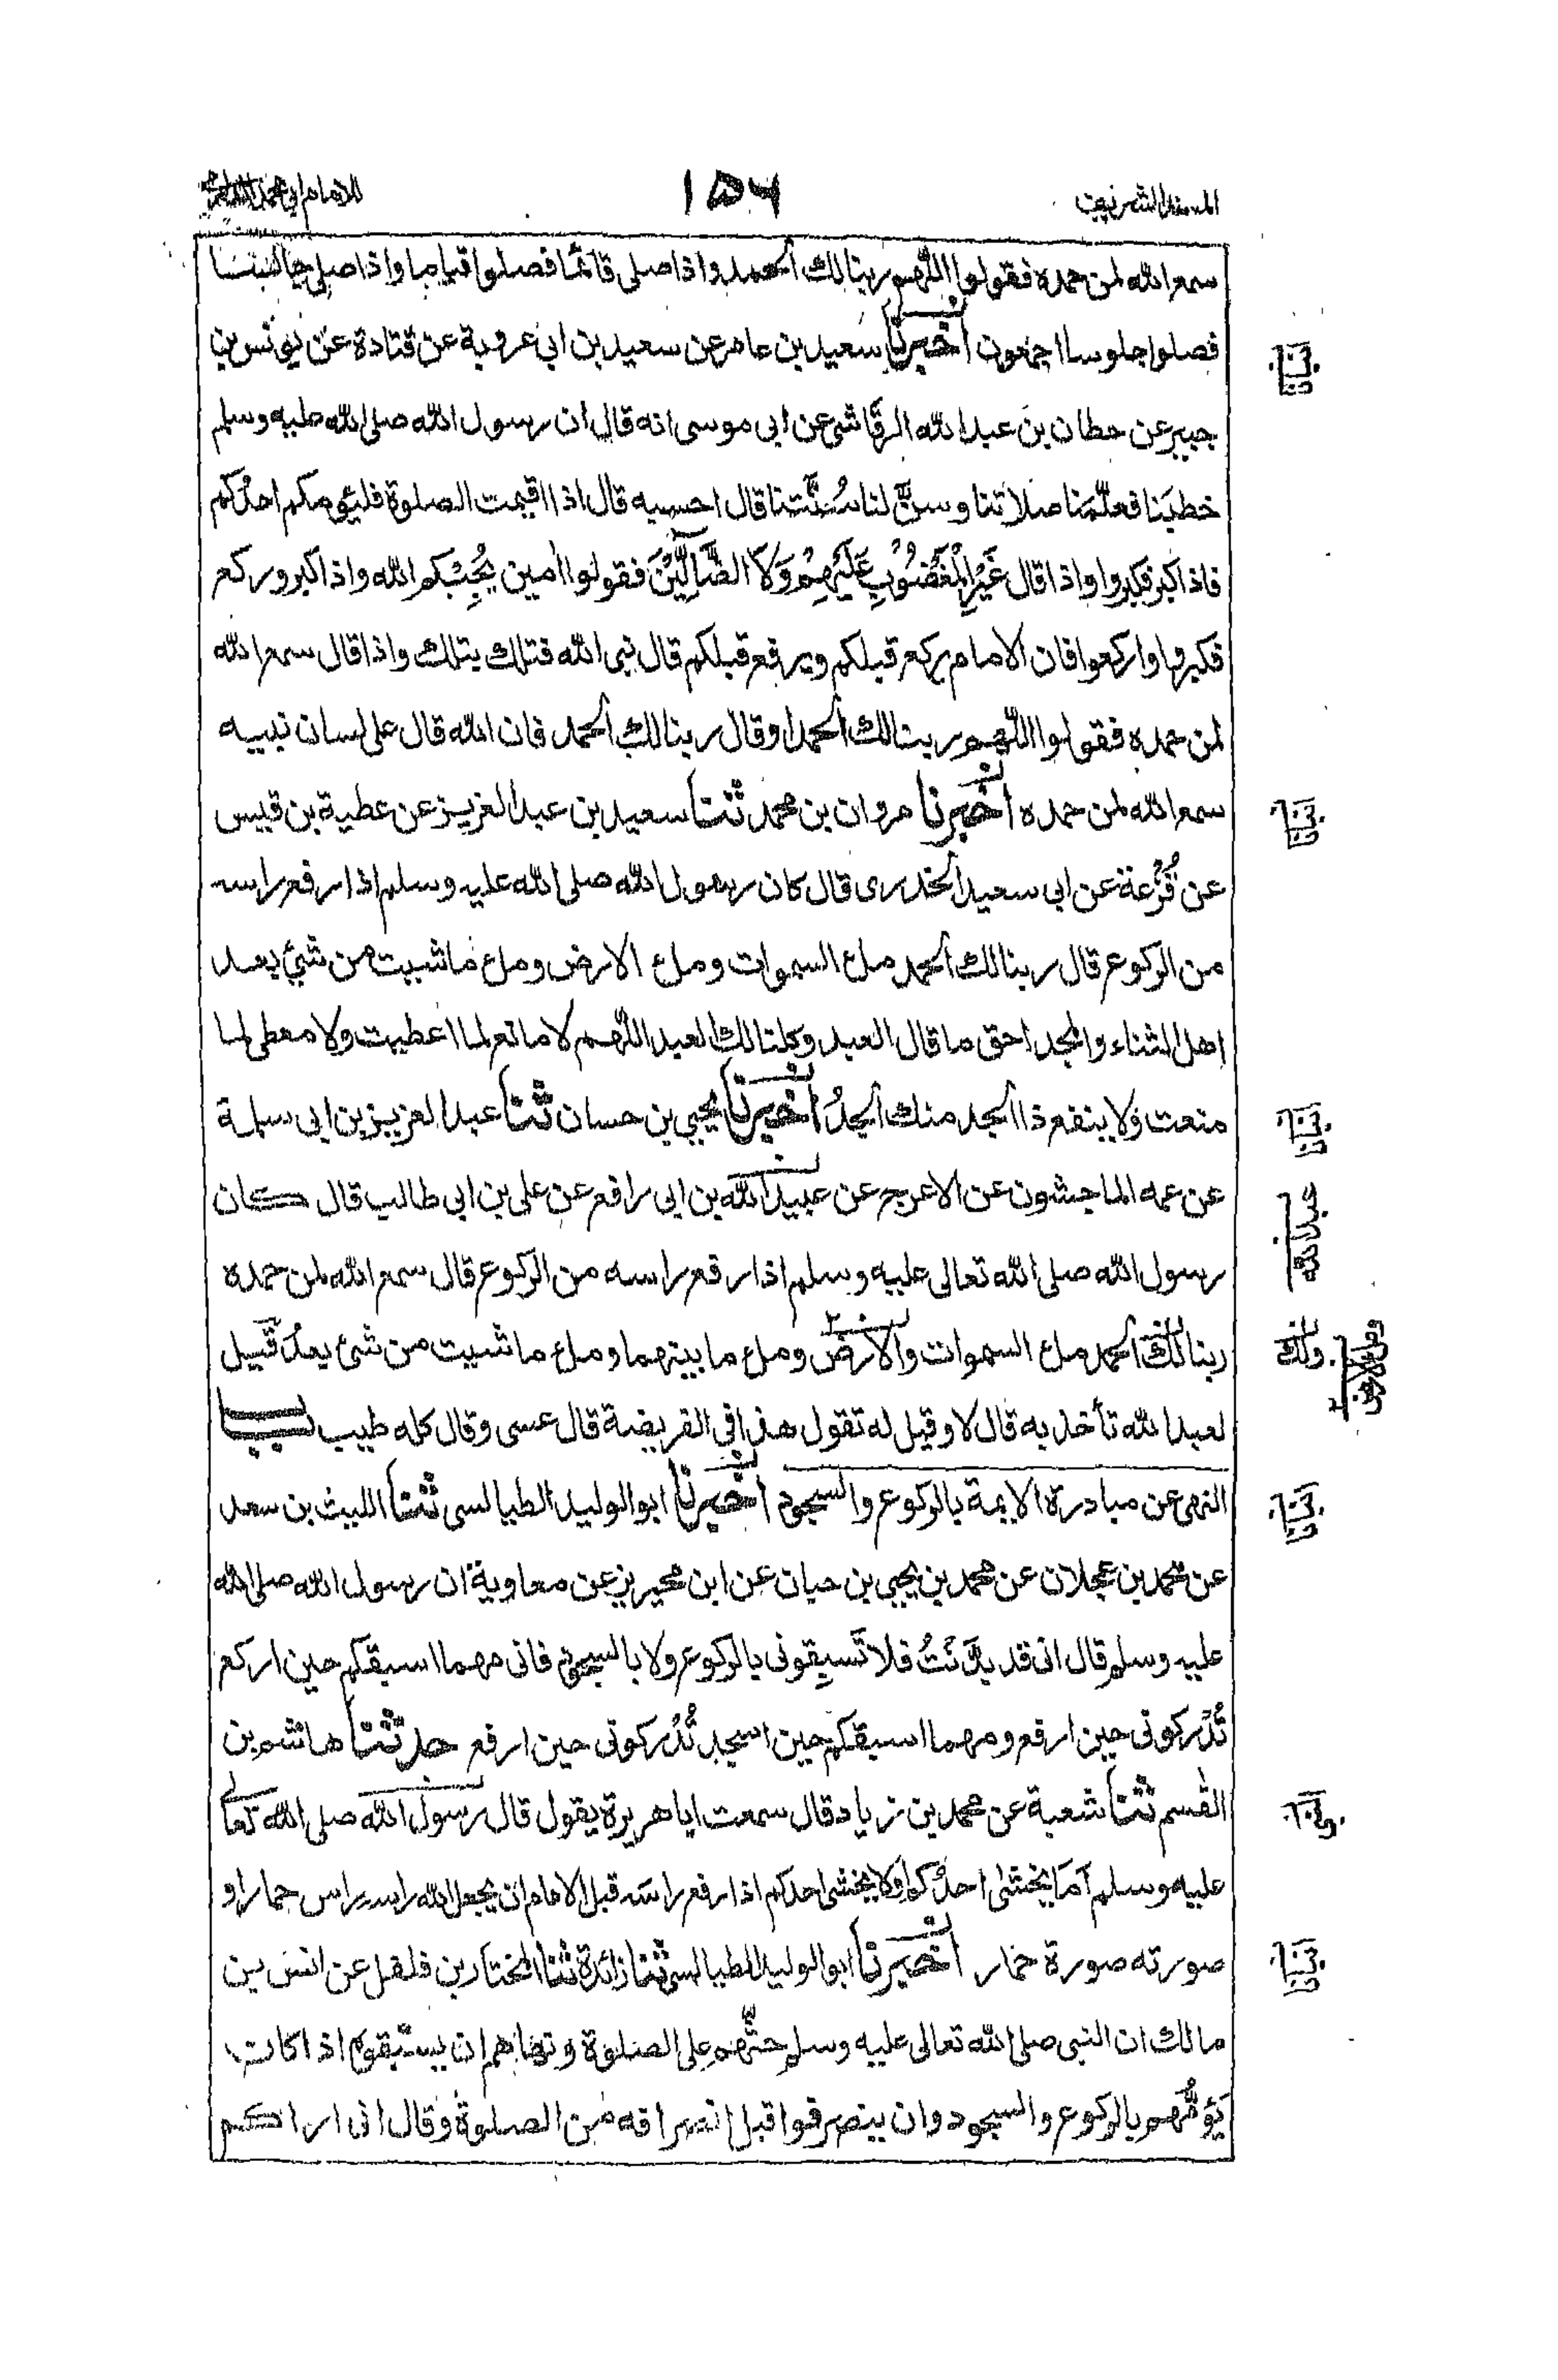 المسند الشريف ١٥٦ للامام ابي محمد الدارمي
سمع الله لمن حمده فقولوا اللهم ربنا لك الحمد واذا صلى قائما فصلوا قياما واذا صلى جالسا
فصلوا جلوسا اجمعون اخبرنا سعيد بن عامر عن سعيد بن ابي عروبة عن قتادة عن يونس بن
جبير عن حطان بن عبد الله الرقاشي عن ابي موسى انه قال ان رسول الله صلى الله عليه وسلم
خطبنا فعلّمنا صلاتنا وسنّ لنا سُنّتنا قال احسبه قال اذا اقيمت الصلوة فليؤمكم احدكم
فاذا كبر فكبروا واذا قال غَيْرِ الْمَغْضُوْبِ عَلَيْهِمْ وَلَا الضَّآلِّيْنَ فقولوا امين يُجِبْكم الله واذا كبر وركع
فكبروا واركعوا فان الامام يركع قبلكم ويرفع قبلكم قال نبي الله فتلك بتلك واذا قال سمع الله
لمن حمده فقولوا اللهم ربنا لك الحمد او قال ربنا لك الحمد فان الله قال على لسان نبيه
سمع الله لمن حمده اخبرنا مروان بن محمد ثنا سعيد بن عبد العزيز عن عطية بن قيس
عن قُزْعة عن ابي سعيد الخدري قال كان رسول الله صلى الله عليه وسلم اذا رفع راسه
من الركوع قال ربنا لك الحمد ملء السموات وملء الارض وملء ما شيت من شيء بعد
اهل الثناء والمجد احق ما قال العبد وكلنا لك العبد اللهم لا مانع لما اعطيت ولا معطي لما
منعت ولا ينفع ذا الجد منك الجدُ اخبرنا يحيى بن حسان ثنا عبد العزيز بن ابي سلمة
عن عمه الماجشون عن الاعرج عن عبيد الله بن ابي رافع عن علي بن ابي طالب قال كان
رسول الله صلى الله تعالى عليه وسلم اذا رفع راسه من الركوع قال سمع الله لمن حمده
ربنا لك الحمد ملء السموات والارض وملء ما بينهما وملء ما شيت من شئ بعدُ قيل
لعبد الله تأخذ به قال لا وقيل له تقول هذا في الفريضة قال عسى وقال كله طيب باب
النهي عن مبادرة الايمة بالركوع والسجود اخبرنا ابو الوليد الطيالسي ثنا الليث بن سعد
عن محمد بن عجلان عن محمد بن يحيى بن حبان عن ابن محيريز عن معاوية ان رسول الله صلى الله
عليه وسلم قال اني قد بدّنتُ فلا تسبقوني بالركوع ولا بالسجود فاني مهما اسبقكم حين اركع
تُدْركوني حين ارفع ومهما اسبقكم حين اسجد تُدْركوني حين ارفع حدثنا هاشم بن
القٰسم ثنا شعبة عن محمد بن زياد قال سمعت ابا هريرة يقول قال رسول الله صلى الله تعالى
عليه وسلم اَمَا يخشى احدُكم او لا يخشى احدكم اذا رفع راسَه قبل الامام ان يجعل الله راسه راس حمار او
صورته صورة حمار اخبرنا ابو الوليد الطيالسي ثنا زائدة ثنا المختار بن فلفل عن انس بن
مالك ان النبي صلى الله تعالى عليه وسلم حثّهم على الصلوة ونهاهم ان يسبقوه اذا كان
يَؤمُّهم بالركوع والسجود وان ينصرفوا قبل انصرافه من الصلوة وقال اني اراكم
عبد الله
ولك
وملء الارض